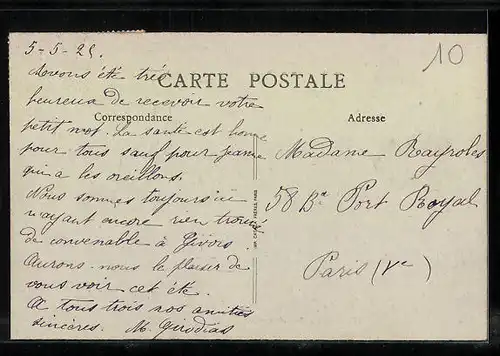 5-5-25.
Avons été très
heureux de recevoir votre
petit mot. La santé est bonne
pour tous sauf pour Jeanne
qui a les oreillons.
Nous sommes toujours ici
n'ayant encore rien trouvé
de convenable à Givors.
Aurons-nous le plaisir de
vous voir cet été.
A tous trois nos amitiés
sincères. M. Girodias
CARTE POSTALE
Correspondance
Adresse
10
Madame Rayroles
58 Bd Port Royal
Paris (Ve)